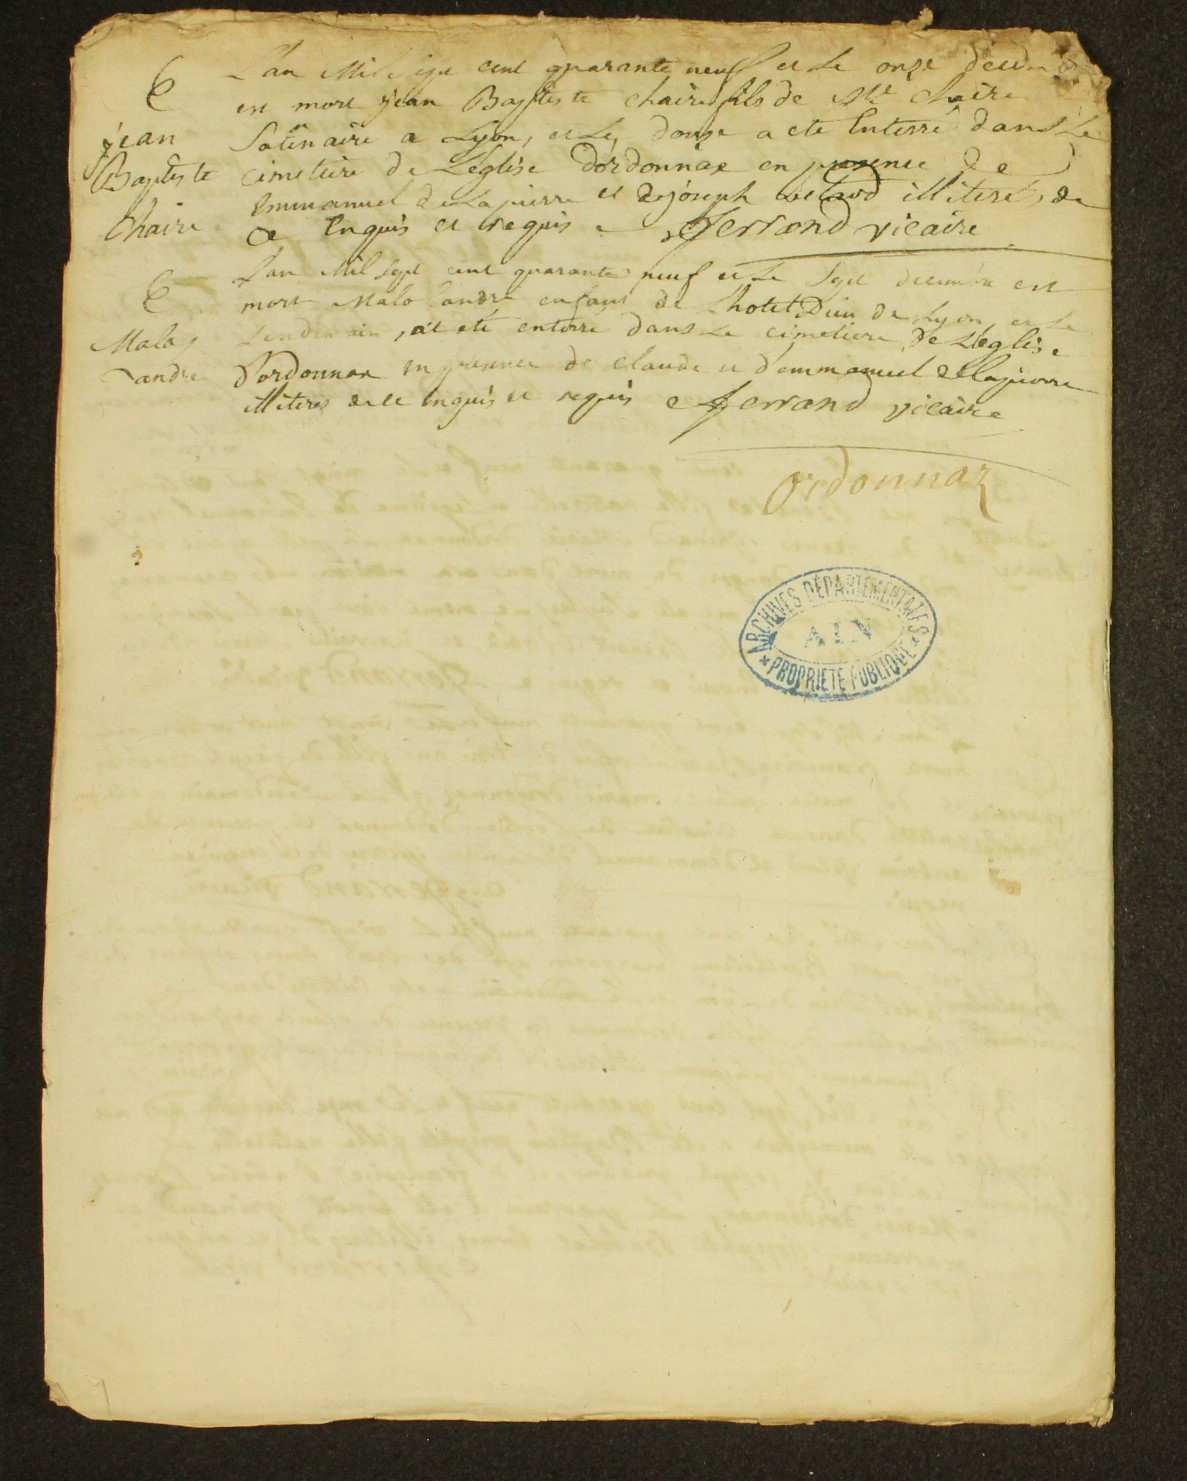 L'an Mil Sept cent quarante neuf et le onze decemb
E
est mort jean Baptiste chaire fils de Mr chaire
jean
Satinaire a Lyon, et le, douze a ete Enterré dans Le
Baptiste
cimetiere de L'eglise D'ordonnaz en presence de
Emmanuel de Lapierre et de joseph illiteres de
chaire
ce Enquis et requis ferrand vicaire
E
L'an Mil Sept cent quarante neuf et Le Sept decembre est
mort Malo landré enfant de L'hotel Dieu de Lyon et Le
Malo
Lendemain, a ete enterré dans Le cimetiere de L'eglise
landré
D'ordonnax en presence de claude et d'emmanuel de Lapierre
illiteres de ce enquis et requis ferrand vicaire
ordonnaz
ARCHIVES DÉPARTEMENTALES
AIN
* PROPRIÉTÉ PUBLIQUE *